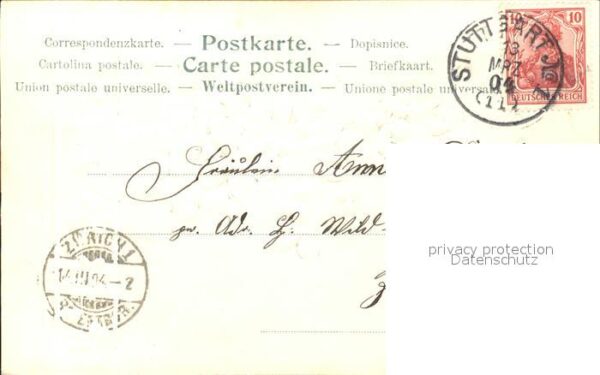 Correspondenzkarte. — Postkarte. — Dopisnice.
Cartolina postale. — Carte postale. — Briefkaart.
Union postale universelle. — Weltpostverein. — Unione postale universale
STUTTGART
10
13
MRZ
04
DEUTSCHES REICH
Fräulein Ann
pr. Adr. H. Wild-
privacy protection
Datenschutz
ZÜRICH 1
14.III.04.-2